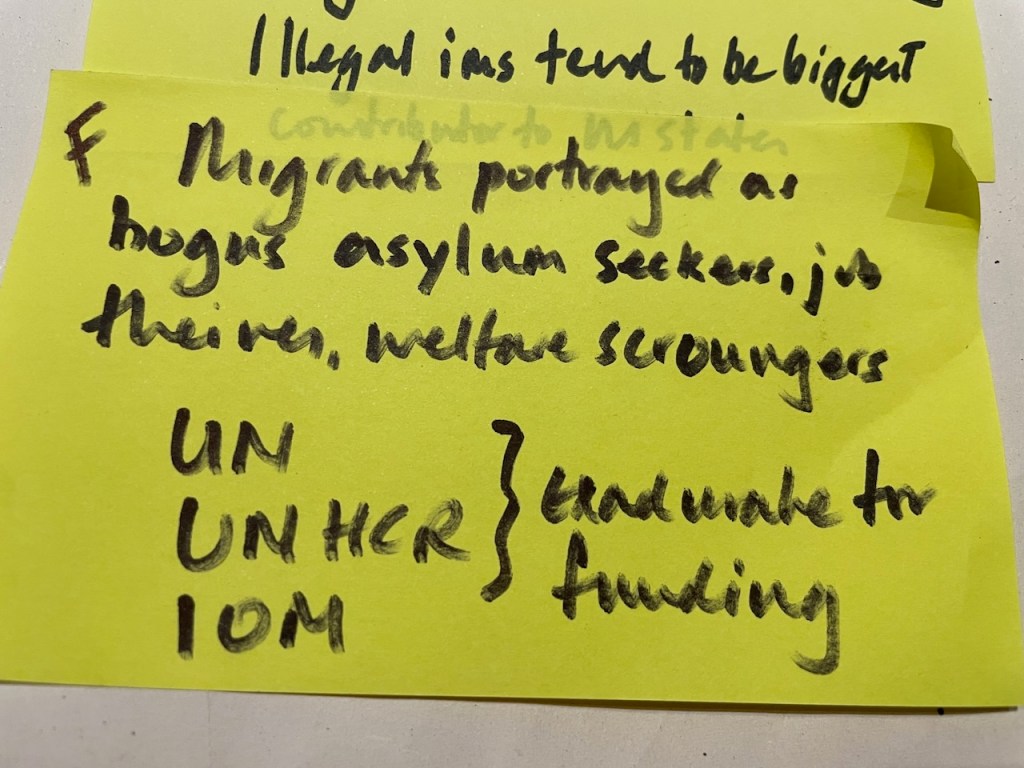 Illegal ims tend to be biggest
contributor to
F Migrants portrayed as
bogus asylum seekers, job
theives, welfare scroungers
UN
UNHCR
IOM
} for
funding